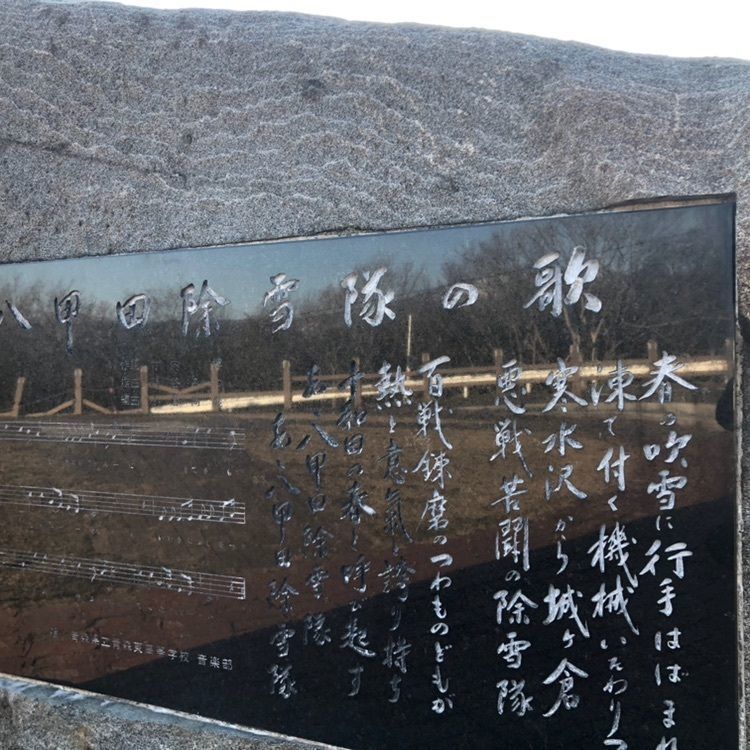 八甲田除雪隊の歌
春の吹雪に行手はばまれ
凍て付く機械いたわりつ
寒水沢から城ヶ倉
悪戦苦闘の除雪隊
百戦錬磨のつわものどもが
熱と意氣と誇り持ち
十和田の春を呼び起す
あゝ八甲田除雪隊
あゝ八甲田除雪隊
高等学校 音楽部